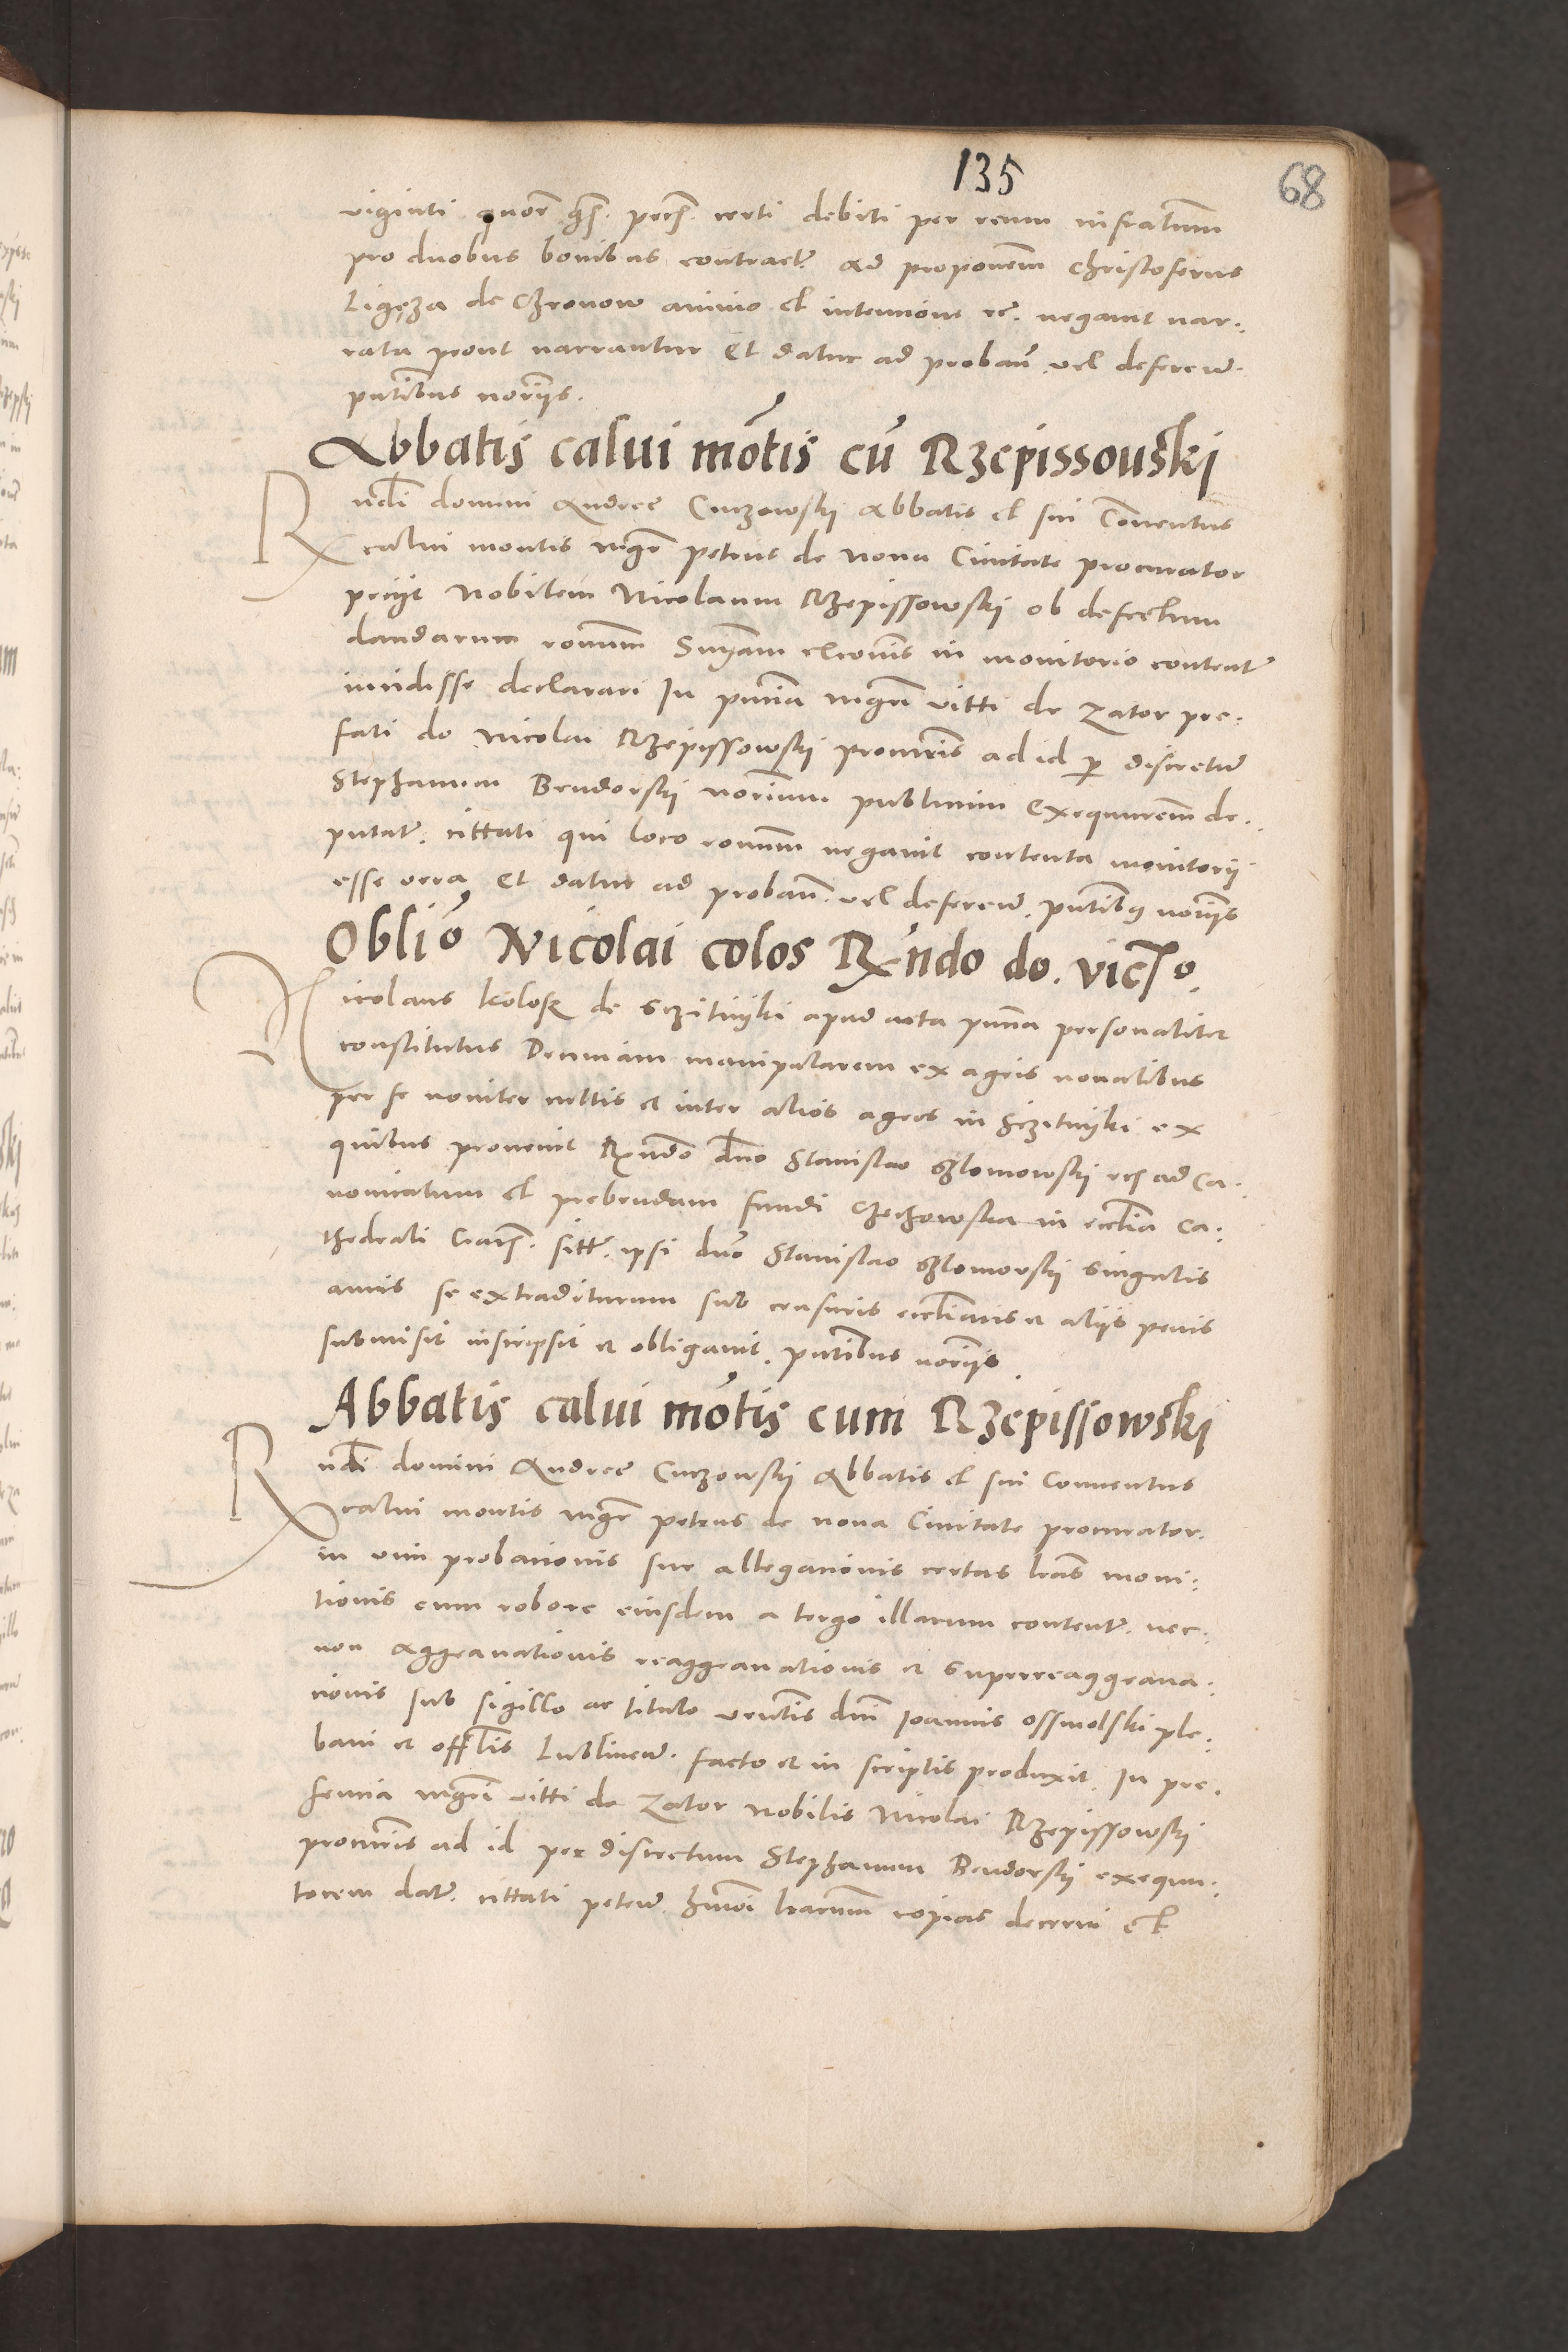 135
68
viginti quor grs. pecs. certi debiti per reum infratum
pro duobus bombus contract. Ad proponem Christoferus
Ligęza de Chronow animo et intentione rc. negavit nar-
rata prout narrantur Et datur ad proban. vel deferen.
pntibus noriis.
Abbatis calui mōtis cū Rzepissouski
Rndi domini Andree Cuczowskij Abbatis et sui Conuentus
calui montis mgr petrus de noua Ciuitate procurator
petiit Nobilem Nicolaum Rzepissowskij ob defectum
dandarum ronum Sniam exconis in monitorio content.
incidisse declarari In pntia mgri vitti de Zator pre-
fati do Nicolai Rzepissowskij procuris ad id p discretum
Stephanum Bendorskij norium publicum Exequutorem de-
putat. cittati qui loco ronum negauit contenta monitorij
esse vera Et datur ad proban. vel deferen. pntibus noriis
Oblio Nicolai colos Rndo do. victo.
Nicolaus kolosz de Sczitniki apud acta pntia personaliter
constitutus Decimam manipularem ex agris noualibus
per se nouiter cultis et inter alios agros in Sczitniki ex
quibus prouenit Rndo dno Stanislao Szlomowskij ad Ca-
nonicatum et prebendam fundi Chechowska in ecclia Ca-
thedrali Cracs. sitt. ipsi dno Stanislao Szlomowskij singulis
annis se extraditurum sub censuris eccliasticis et aliis penis
submisit inscripsit et obligauit. pntibus noriis.
Abbatis calui mōtis cum Rzepissowski
Rndi domini Andree Cuczowskij Abbatis et sui Conuentus
calui montis mgr petrus de noua Ciuitate procurator.
in vim probationis sue allegationis certas lras moni-
tionis cum robore eiusdem a tergo illarum content. nec-
non Aggrauationis reaggrauationis et superreaggraua-
tionis sub sigillo ac titulo dni Joannis Ossmolski ple-
bani et offlis Lublinen. facto et in scriptis produxit. In pre-
sencia mgri vitti de Zator Nobilis Nicolai Rzepissowskij
procuris ad id per discretum Stephanum Bendorskij exequu-
torem dat. cittati peten. hmoi lrarum copias decerni et